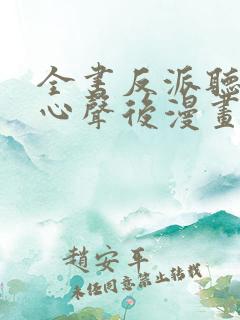 全書反派聽
心聲後漫畫
趙安平
未經同意禁止轉載